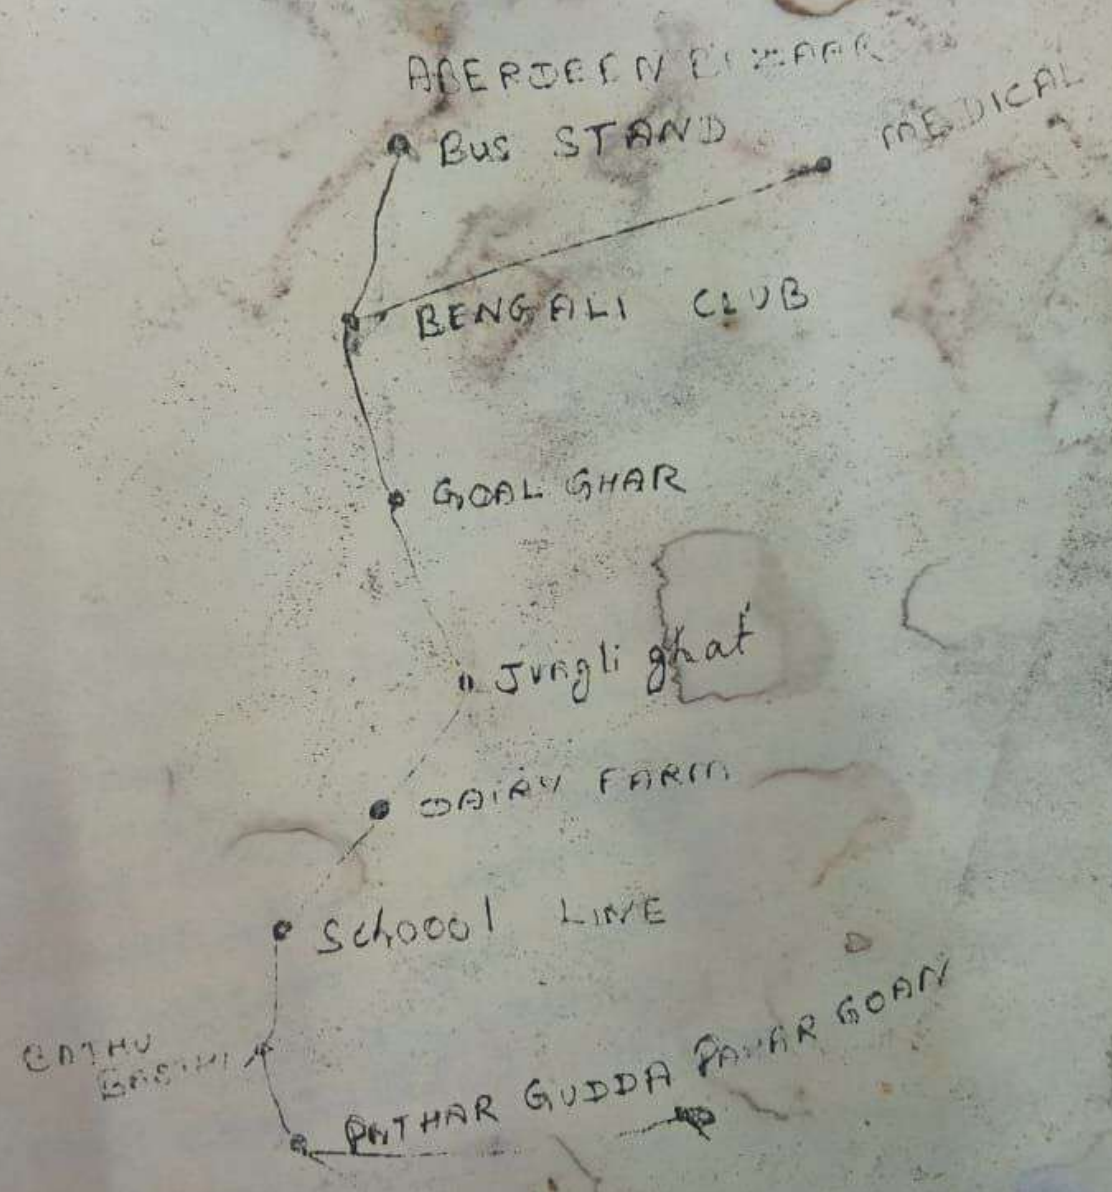 ABERDEEN BAZAAR
BUS STAND
MEDICAL
BENGALI CLUB
GOAL GHAR
Jungli ghat
DAIRY FARM
Schoool LINE
BATHU
BASTHI
PATHAR GUDDA PAHAR GOAN